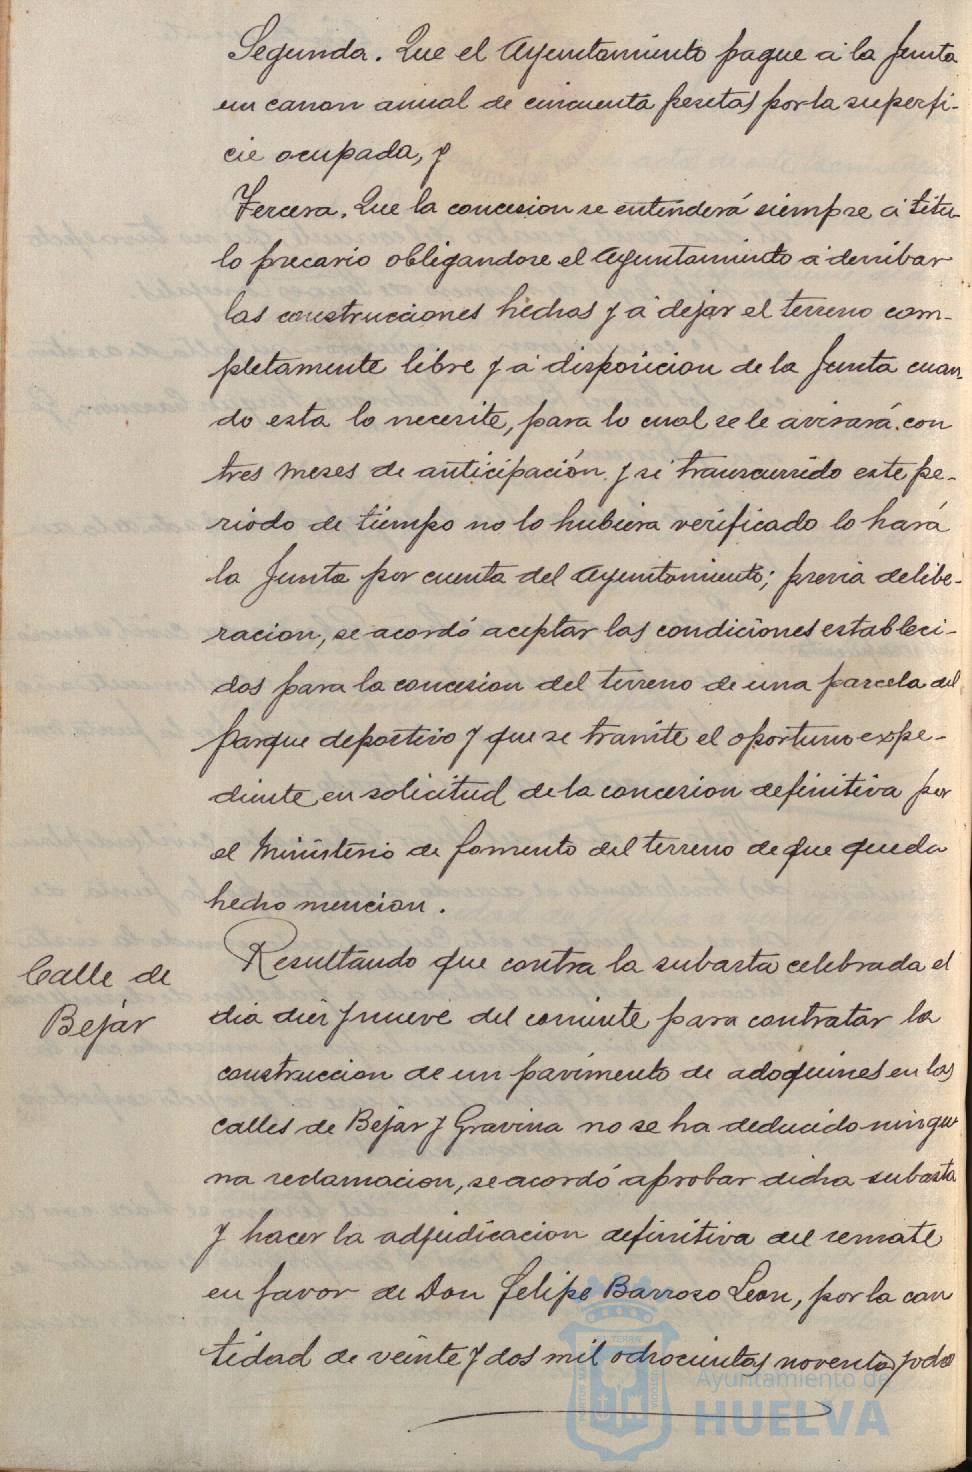 Segunda. Que el Ayuntamiento pague a la Junta
un canon anual de cincuenta pesetas por la superfi-
cie ocupada, y
Tercera. Que la concesion se entenderá siempre a titu-
lo precario obligandose el Ayuntamiento a derribar
las construcciones hechas y a dejar el terreno com-
pletamente libre y a disposicion de la Junta cuan-
do esta lo necesite, para lo cual se le avisará con
tres meses de anticipación y si transcurrido este pe-
riodo de tiempo no lo hubiera verificado lo hará
la Junta por cuenta del Ayuntamiento; previa delibe-
racion, se acordó aceptar las condiciones estableci-
dos para la concesion del terreno de una parcela del
parque deportivo y que se tramite el oportuno expe-
diente en solicitud de la concesion definitiva por
el Ministerio de fomento del terreno de que queda
hecho mencion.
Calle de
Bejár
Resultando que contra la subasta celebrada el
dia diez y nueve del corriente para contratar la
construccion de un pavimento de adoquines en las
calles de Bejar y Gravina no se ha deducido ningu
na reclamacion, se acordó aprobar dicha subasta
y hacer la adjudicacion definitiva del remate
en favor de Don Felipe Barroso Leon, por la can
tidad de veinte y dos mil ochocientas noventa y ocho
Ayuntamiento de
HUELVA